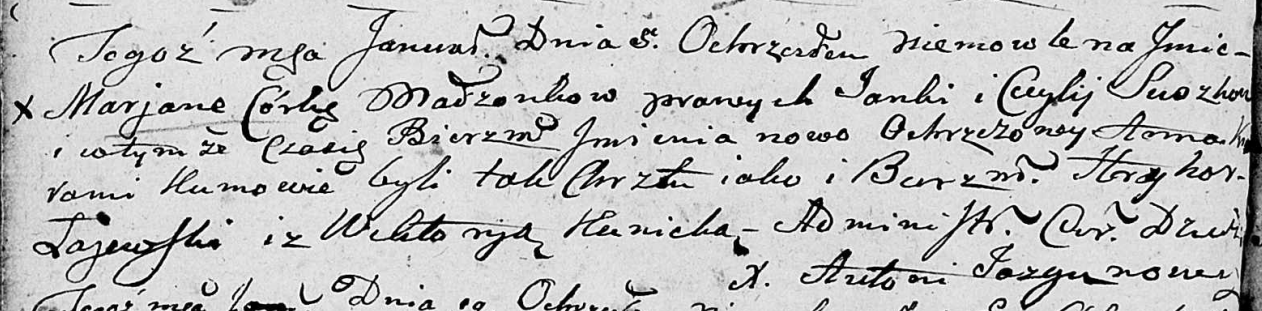 Tegoż msa Januar. Dnia 8. Ochrzciłem niemowle na Jmie-
x Marjane Córkę Małżonkow prawych Janki i Cecylij Suszkow
i w tym że czasie Bierzm Jmienia nowo Ochrzczoney Anna
rami Kumowie byli tak Chrztu iako i Bierzm. Hryhor.
Łajewski i z Wiktoryą Kunicką - Administr. Cer.
X. Antoni
Tegoż msa Dnia Ochrzciłem